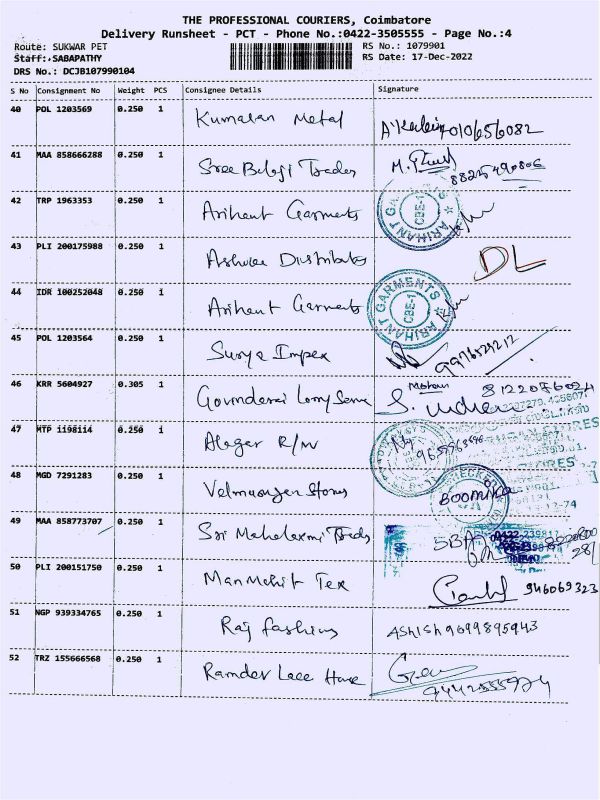 THE PROFESSIONAL COURIERS, Coimbatore
Delivery Runsheet - PCT - Phone No.:0422-3505555 - Page No.:4
Route: SUKWAR PET RS No.: 1079901
Staff: SABAPATHY RS Date: 17-Dec-2022
DRS No.: DCJB107990104
S No Consignment No Weight PCS Consignee Details Signature
40 POL 1203569 0.250 1 Kumaran Metal 7010656082
41 MAA 858666288 0.250 1 Sree Balaji Trades 8825490806
42 TRP 1963353 0.250 1 Arihant Garments ARIHANT GARMENTS CBE-1
43 PLI 200175988 0.250 1 Ashoka Distributors DL
44 IDR 100252048 0.250 1 Arihant Garments ARIHANT GARMENTS CBE-1
45 POL 1203564 0.250 1 Surya Impex
46 KRR 5604927 0.305 1 Govindaraj Lorry Mohan 8122076024
47 MTP 1198114 0.250 1 Alagar R/M
48 MGD 7291283 0.250 1 Velmurugan Stores BOOMIKA
49 MAA 858773707 0.250 1 Sri Mahalaxmi Trads
50 PLI 200151750 0.250 1 Manmohit Tex 946069323
51 NGP 939334765 0.250 1 Raj fashions Ashish 9699895943
52 TRZ 155666568 0.250 1 Ramdev Lace House 9442555974